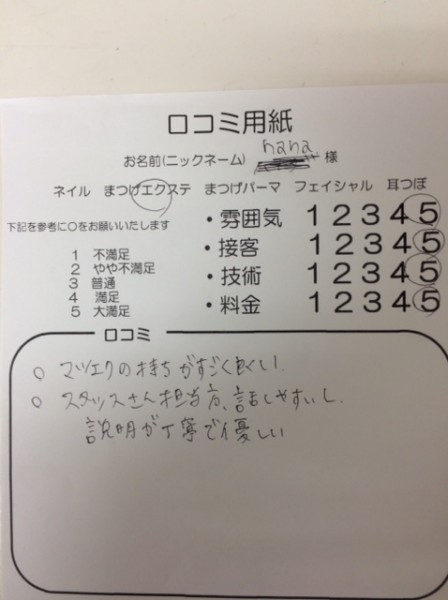 口コミ用紙
お名前(ニックネーム) hana 様
ネイル まつげエクステ まつげパーマ フェイシャル 耳つぼ
下記を参考に○をお願いいたします
・雰囲気 1 2 3 4 5
・接客 1 2 3 4 5
・技術 1 2 3 4 5
・料金 1 2 3 4 5
1 不満足
2 やや不満足
3 普通
4 満足
5 大満足
口コミ
○ マツエクの持ちがすごく良い.
○ スタッフさん担当方、話しやすいし.
説明が丁寧で優しい